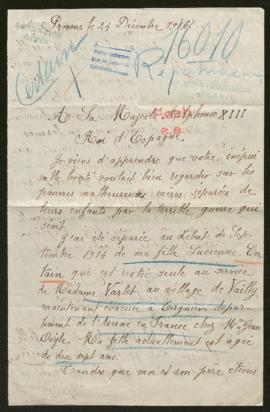 Provins le 24 Décembre 1916
16010
Certain
Rapatrier
A Sa Majesté Alphonse XIII
Roi d'Espagne.
Je viens d'apprendre que votre inépui
sable bonté voulait bien regarder sur les
pauvres malheureuses mères séparées de
leurs enfants par la terrible guerre qui
sévit.
J'ai été séparée au début de Sep-
tembre 1914 de ma fille Lucienne Cer
tain qui est restée seule au service
de Madame Varlet au village de Vailly
maintenant évacuée à Tergnier dépar-
timent de l'Aisne en France chez Mr
Ma fille actuellement est agée
de dix sept ans.
Tandis que moi et son père étions